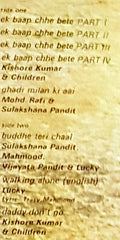 side one
ek baap chhe bete PART I
ek baap chhe bete PART II
ek baap chhe bete PART III
ek baap chhe bete PART IV
Kishore Kumar
& Children
ghadi milan ki aai
Mohd. Rafi &
Sulakshana Pandit
side two
buddhe teri chaal
Sulakshana Pandit
Mahmood,
Vijayata Pandit & Lucky
walking alone (english)
Lucky
Lyric: Tracy Mahmood
daddy don't go
Kishore Kumar
& Children